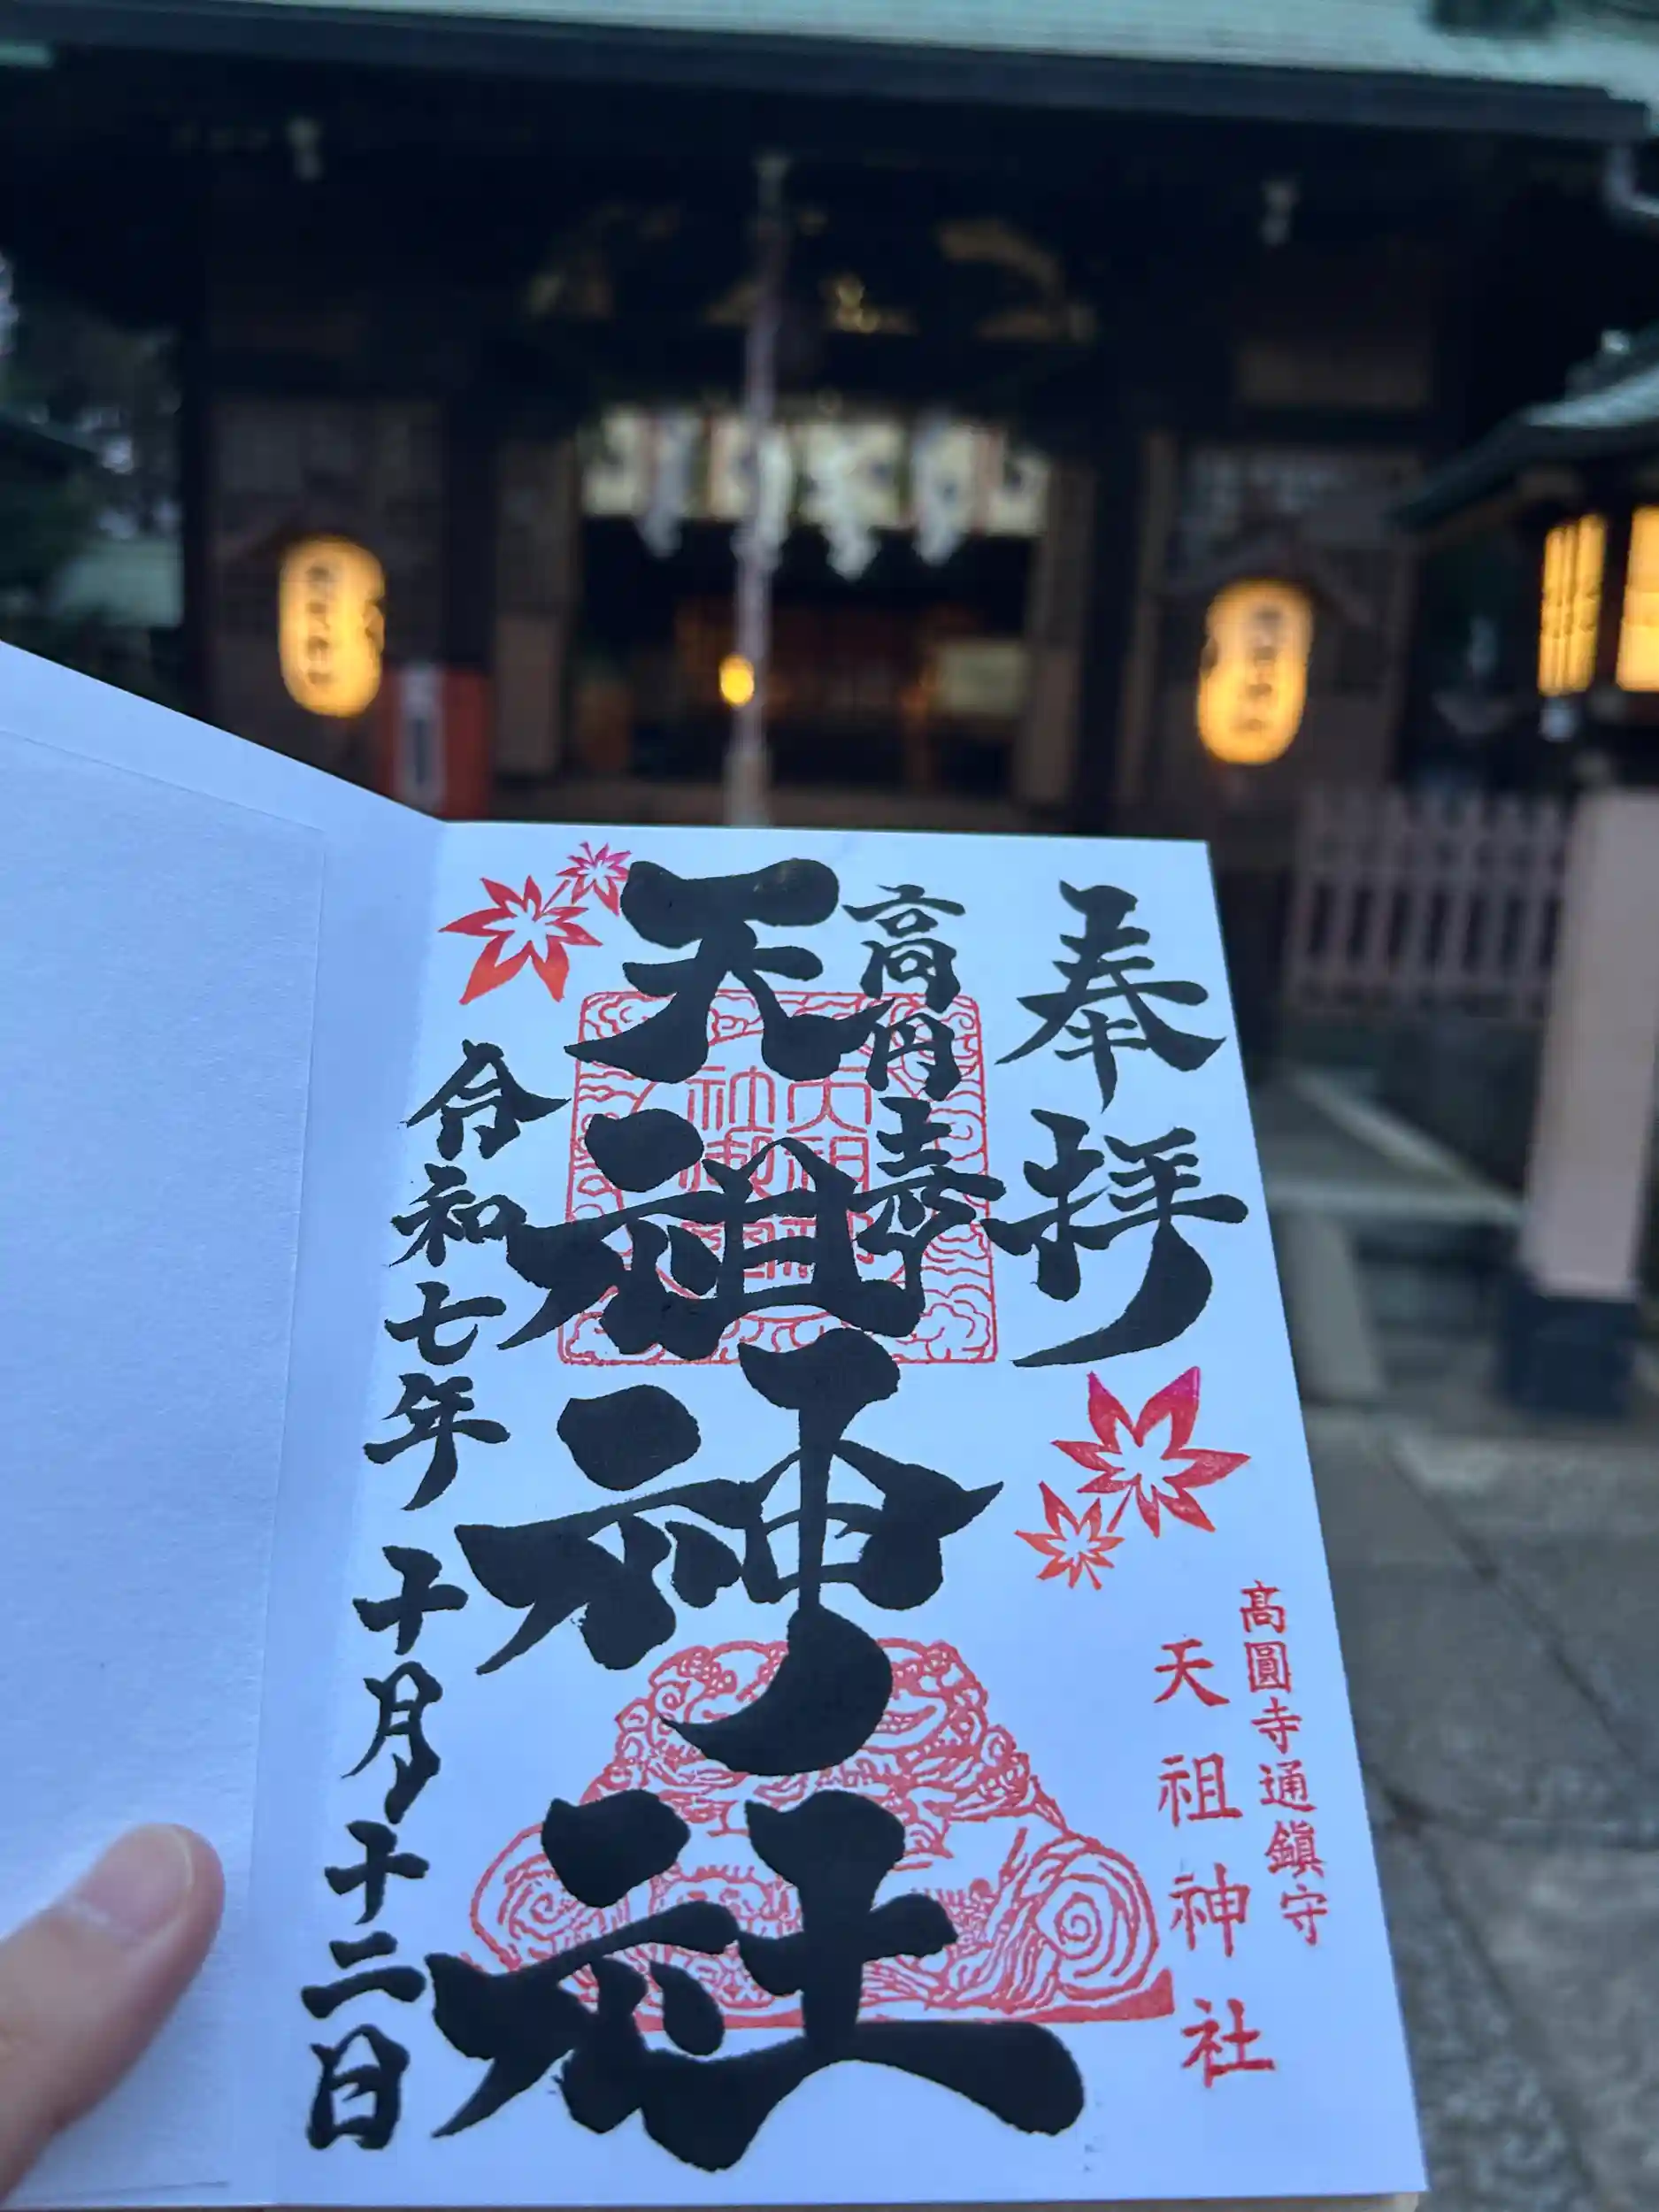 奉拝
高円寺
天祖神社
令和七年 十月十二日
高圓寺通鎮守
天祖神社